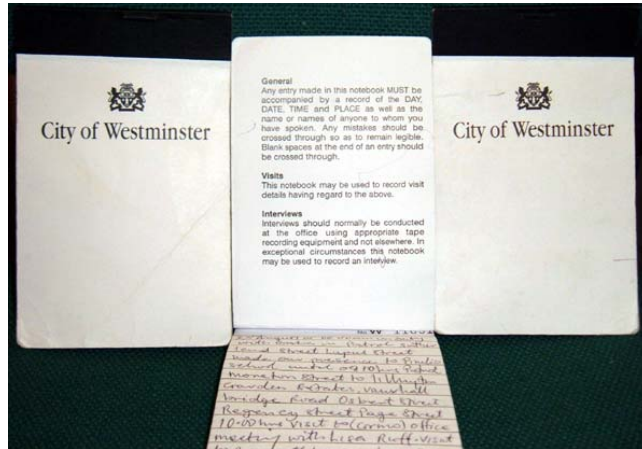 City of Westminster
General
Any entry made in this notebook MUST be
accompanied by a record of the DAY,
DATE, TIME and PLACE as well as the
name or names of anyone to whom you
have spoken. Any mistakes should be
crossed through so as to remain legible.
Blank spaces at the end of an entry should
be crossed through.
Visits
This notebook may be used to record visit
details having regard to the above.
Interviews
Interviews should normally be conducted
at the office using appropriate tape
recording equipment and not elsewhere. In
exceptional circumstances this notebook
may be used to record an interview.
City of Westminster
EW
with in Patrol
Street Lupus Street
made our presence to
school until 0910hrs
moreton Street to Tillington
Estates, vauxhall
bridge Road Osbert Street
Regency Street Page Street
10.00hrs visit to office
meeting with Lisa visit